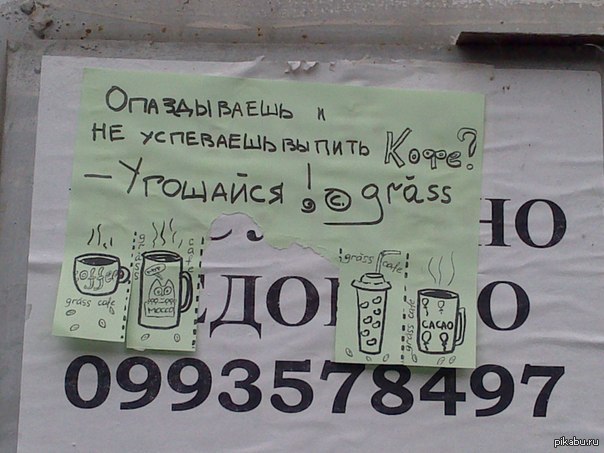 Опаздываешь и
не успеваешь выпить Кофе?
– Угощайся! © gräss
coffee
gräss cafe
gräss cafe
MOCCO
gräss cafe
gräss cafe
CACAO
НО
ЕДО
О
0993578497
pikabu.ru